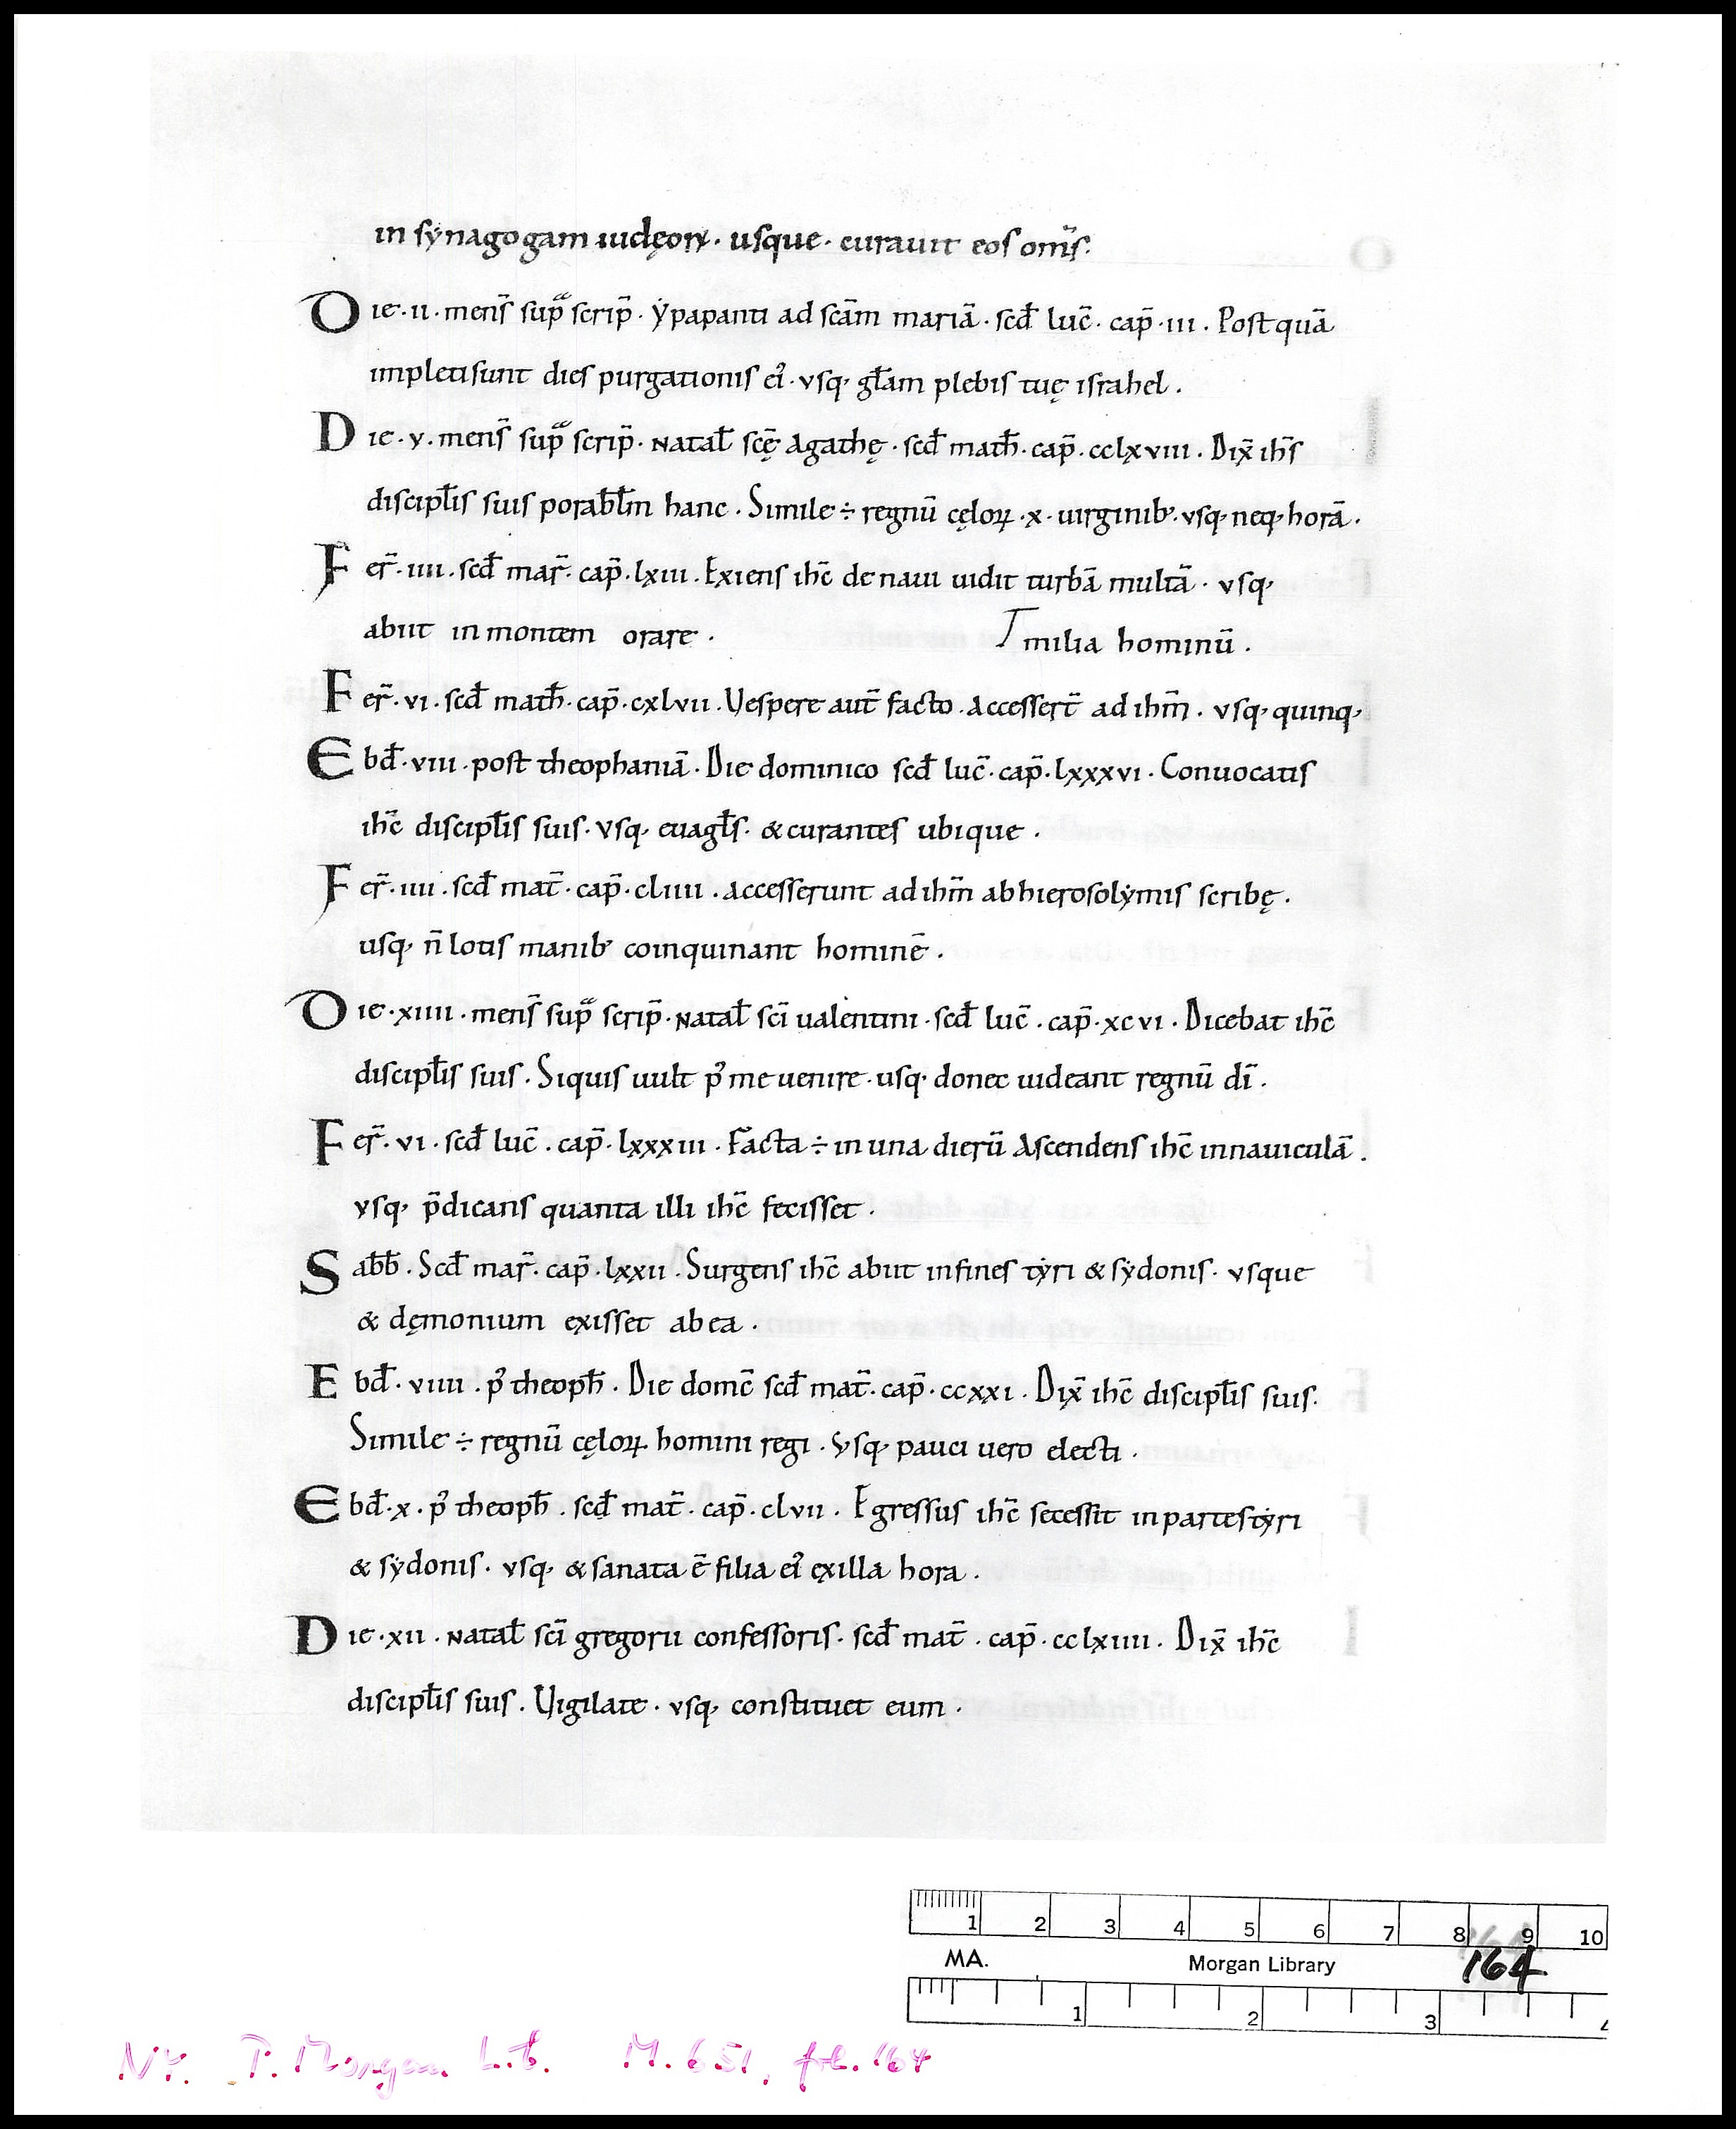 in synagogam iudęoꝝ · usque · curauit eos om̄s.
Die · ii · mens̄ sup̄ scrip̄ · ẏpapanti ad scām mariā · scđ luc̄ · cap̄ · iii · Postquā
impleti sunt dies purgationis ei᾽ · vsq· głam plebis tuę israhel .
Die · v · mens̄ sup̄ scrip̄ · Natał scę̄ Agathę · scđ math̄ · cap̄ · cclxviii · Dix̄ ih̄s
discipłis suis porab̄łm hanc · Simile ÷ regnū cęloꝝ · x · uirginib᾽ · vsq· neq· horā .
Fer̄ · iiii · scđ mar̄ · cap̄ · lxiii · Exiens ih̄c de naui uidit turbā multā · vsq·
abiit in montem orare .
milia hominū .
Fer̄ · vi · scđ math̄ · cap̄ · cxlvii · Uespere aut̄ facto · Accessert̄ ad ihm̄ · vsq· quinq·
Ebđ · viii · post theophaniā · Die dominico scđ luc̄ · cap̄ · lxxxvi · Conuocatis
ih̄c discipłis suis · vsq· euagłs · & curantes ubique .
Fer̄ · iiii · scđ mat̄ · cap̄ · cliiii · Accesserunt ad ihm̄ ab hierosolẏmis scribę .
usq· n̄ lotis manib᾽ coinquinant hominē .
Die · xiiii · mens̄ sup̄ scrip̄ · Natał scī ualentini · scđ luc̄ · cap̄ · xcvi · Dicebat ih̄c
discipłis suis · Siquis uult p᾽ me uenire · usq· donec uideant regnū dī .
Fer̄ · vi · scđ luc̄ · cap̄ · lxxxiii · Facta ÷ in una dierū Ascendens ih̄c in nauiculā .
vsq· p̄dicans quanta illi ih̄c fecisset .
Sab̄b̄ · Scđ mar̄ · cap̄ · lxxii · Surgens ih̄c abiit in fines tẏri & sẏdonis · vsque
& dęmonium exisset ab ea .
Ebđ · viiii · p᾽ theoph̄ · Die domc̄ scđ mat̄ · cap̄ · ccxxi · Dix̄ ih̄c discipłis suis ·
Simile ÷ regnū cęloꝝ homini regi · Vsq· pauci uero electi .
Ebđ · x · p᾽ theoph̄ · scđ mat̄ · cap̄ · clvii · Egressus ih̄c secessit in partes tẏri
& sẏdonis · vsq· & sanata ē filia ei᾽ ex illa hora .
Die · xii · Natał scī gregorii confessoris · scđ mat̄ · cap̄ · cclxiiii · Dix̄ ih̄c
discipłis suis · Uigilate · vsq· constituet eum .
1 2 3 4 5 6 7 8 9 10
MA. Morgan Library 164
1 2 3
NY. P. Morgan Lib. M. 651, fol. 164